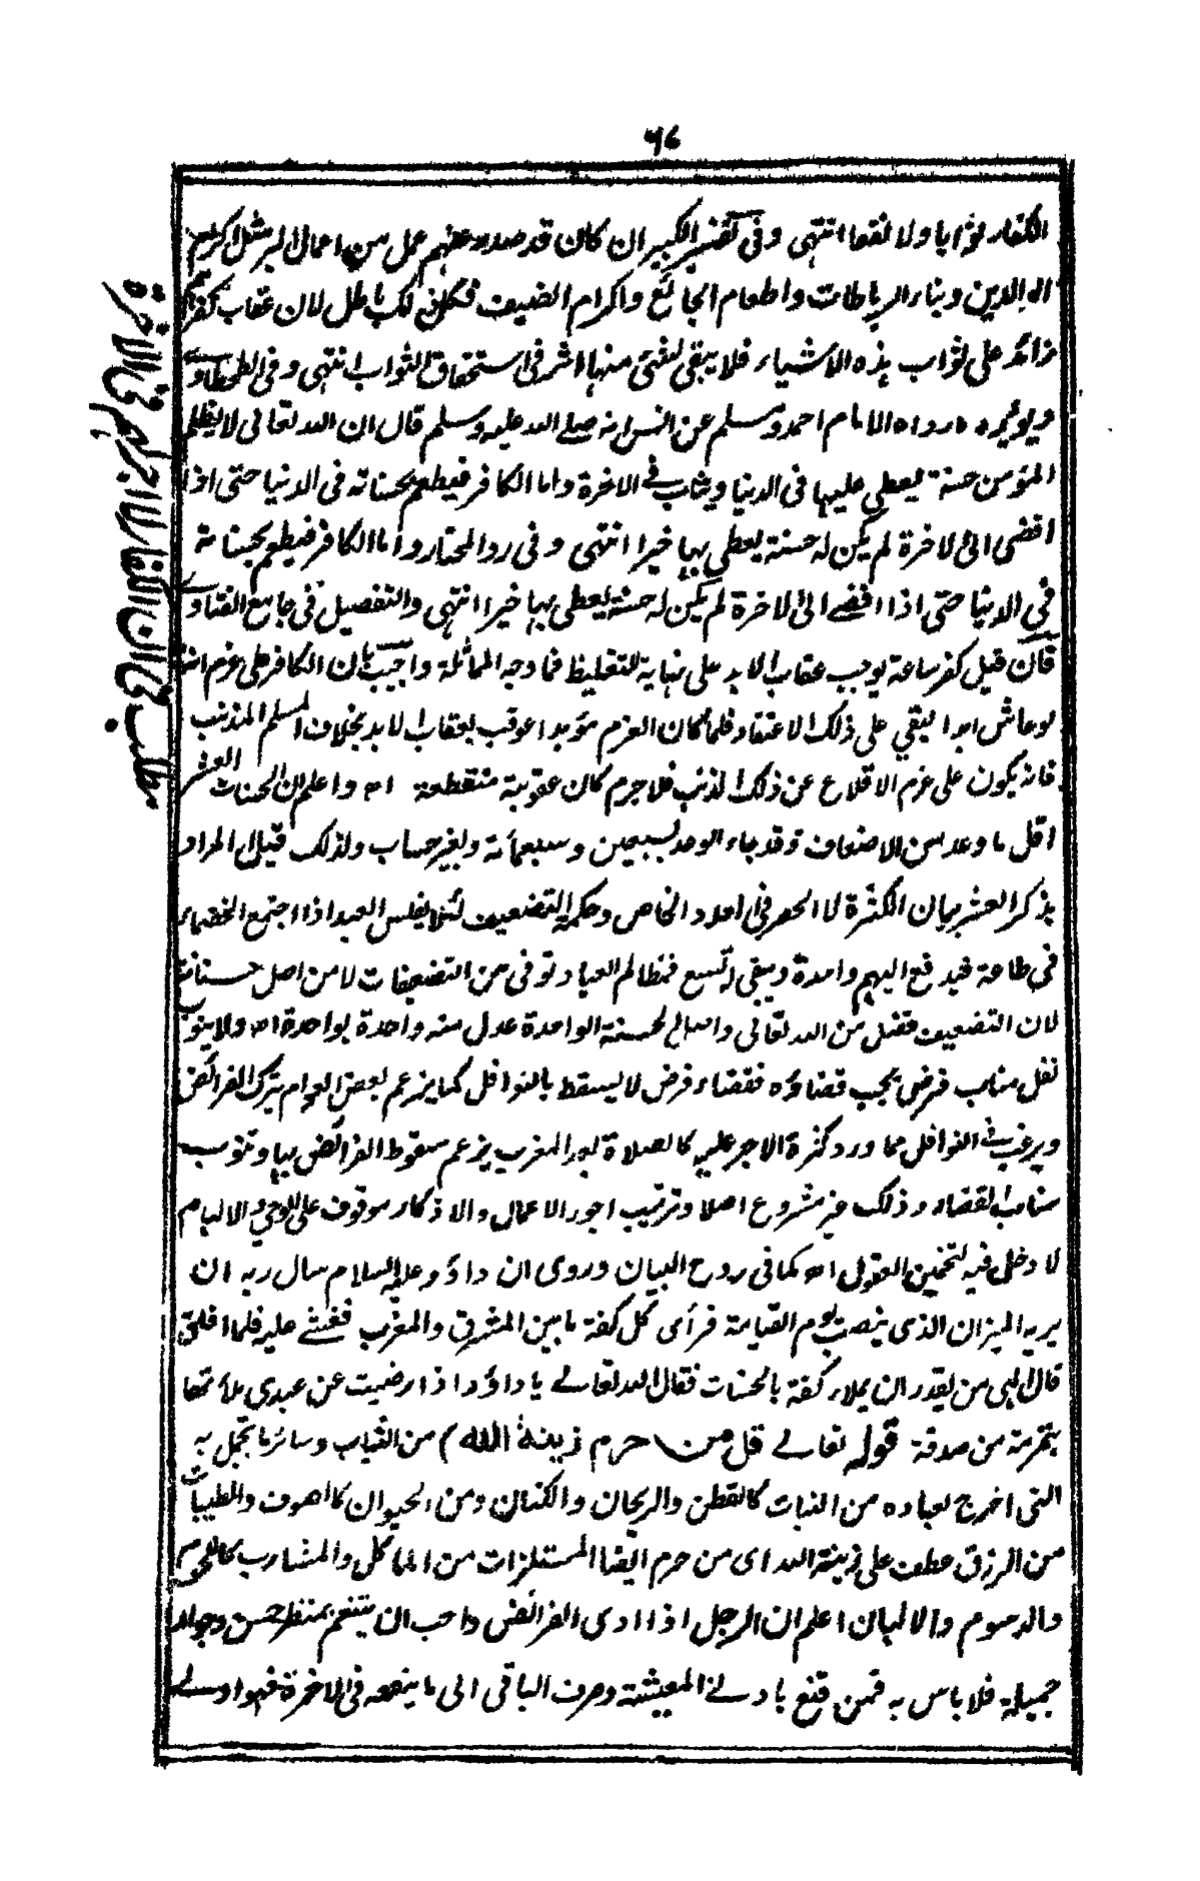 ٦٧
الكفار ثوابا ولا نفعا انتهى وفى تفسير الكبير ان كان قد صدر عنهم عمل من اعمال البر مثل اكرام
الوالدين وبناء الرباطات واطعام الجائع واكرام الضيف فكل ذلك باطل لان عقاب كفرهم
زائد على ثواب هذه الاشياء فلا يبقى لشئ منها اثر فى استحقاق الثواب انتهى وفى الطحطاوى
ويؤيده مارواه الامام احمد ومسلم عن انس انه صلى الله عليه وسلم قال ان الله تعالى لا يظلم
المؤمن حسنة يعطى عليها فى الدنيا ويثاب فى الاخرة واما الكافر فيطعم بحسناته فى الدنيا حتى اذا
افضى الى الاخرة لم يكن له حسنة يعطى بها خيرا انتهى وفى رد المحتار واما الكافر فيطعم بحسناته
فى الدنيا حتى اذا افضى الى الاخرة لم يكن له حسنة يعطى بها خيرا انتهى والتفصيل فى جامع الفتاوى
فان قيل كفر ساعة يوجب عقاب الابد على نهاية التغليظ فما وجه المماثلة واجيب بان الكافر على عزم انه
لو عاش ابدا لبقي على ذلك الاعتقاد فلما كان العزم مؤبدا عوقب بعقاب الابد بخلاف المسلم المذنب
فانه يكون على عزم الاقلاع عن ذلك الذنب فلا جرم كان عقوبته منقطعة اه واعلم ان الحسنات العشر
اقل ما وعد من الاضعاف وقد جاء الوعد بسبعين وسبعمائة وبغير حساب ولذلك قيل ان المراد
بذكر العشر بيان الكثرة لا الحصر فى العدد الخاص وحكمة التضعيف لئلا يفلس العبد اذا اجتمع الخصماء
فى طاعة فيدفع اليهم واحدة ويبقى له تسع فمظالم العباد توفى من التضعيفات لا من اصل حسناته
لان التضعيف فضل من الله تعالى واصل الحسنة الواحدة عدل منه واحدة بواحدة اه ولا ينوب
نفل مناب فرض يجب قضاؤه فقضاء فرض لا يسقط بالنوافل كما يزعم بعض العوام بترك الفرائض
ويرغب فى النوافل مما ورد كثرة الاجر عليه كالصلاة بعد المغرب يزعم سقوط الفرائض بها وتنوب
مناب القضاء وذلك غير مشروع اصلا وترتيب اجور الاعمال والاذكار موقوف على الوحي والالهام
لا دخل فيه لتخمين العقول اه كما فى روح البيان وروى ان داؤد عليه السلام سال ربه ان
يريه الميزان الذى ينصب يوم القيامة فرأى كل كفة ما بين المشرق والمغرب فغشي عليه فلما افاق
قال الهى من يقدر ان يملاء كفته بالحسنات فقال الله تعالى يا داؤد اذا رضيت عن عبدى ملأتها
بتمرة من صدقة قوله تعالى قل من حرم زينة الله ) من الثياب وسائر ما يتجمل به
التى اخرج لعباده من النبات كالقطن والريحان والكتان ومن الحيوان كالصوف والطيبات
من الرزق عطف على زينة الله اى من حرم ايضا المستلذات من الماكل والمشارب كاللحوم
والدسوم والالبان اعلم ان الرجل اذا ادى الفرائض واحب ان يتنعم بمنظر حسن وجوار
جميلة فلا باس به فمن قنع بادنى المعيشة وصرف الباقى الى ما ينفعه فى الاخرة فهو اولى
مطلب فى ان الكفار لا اجر لهم فى الاخرة